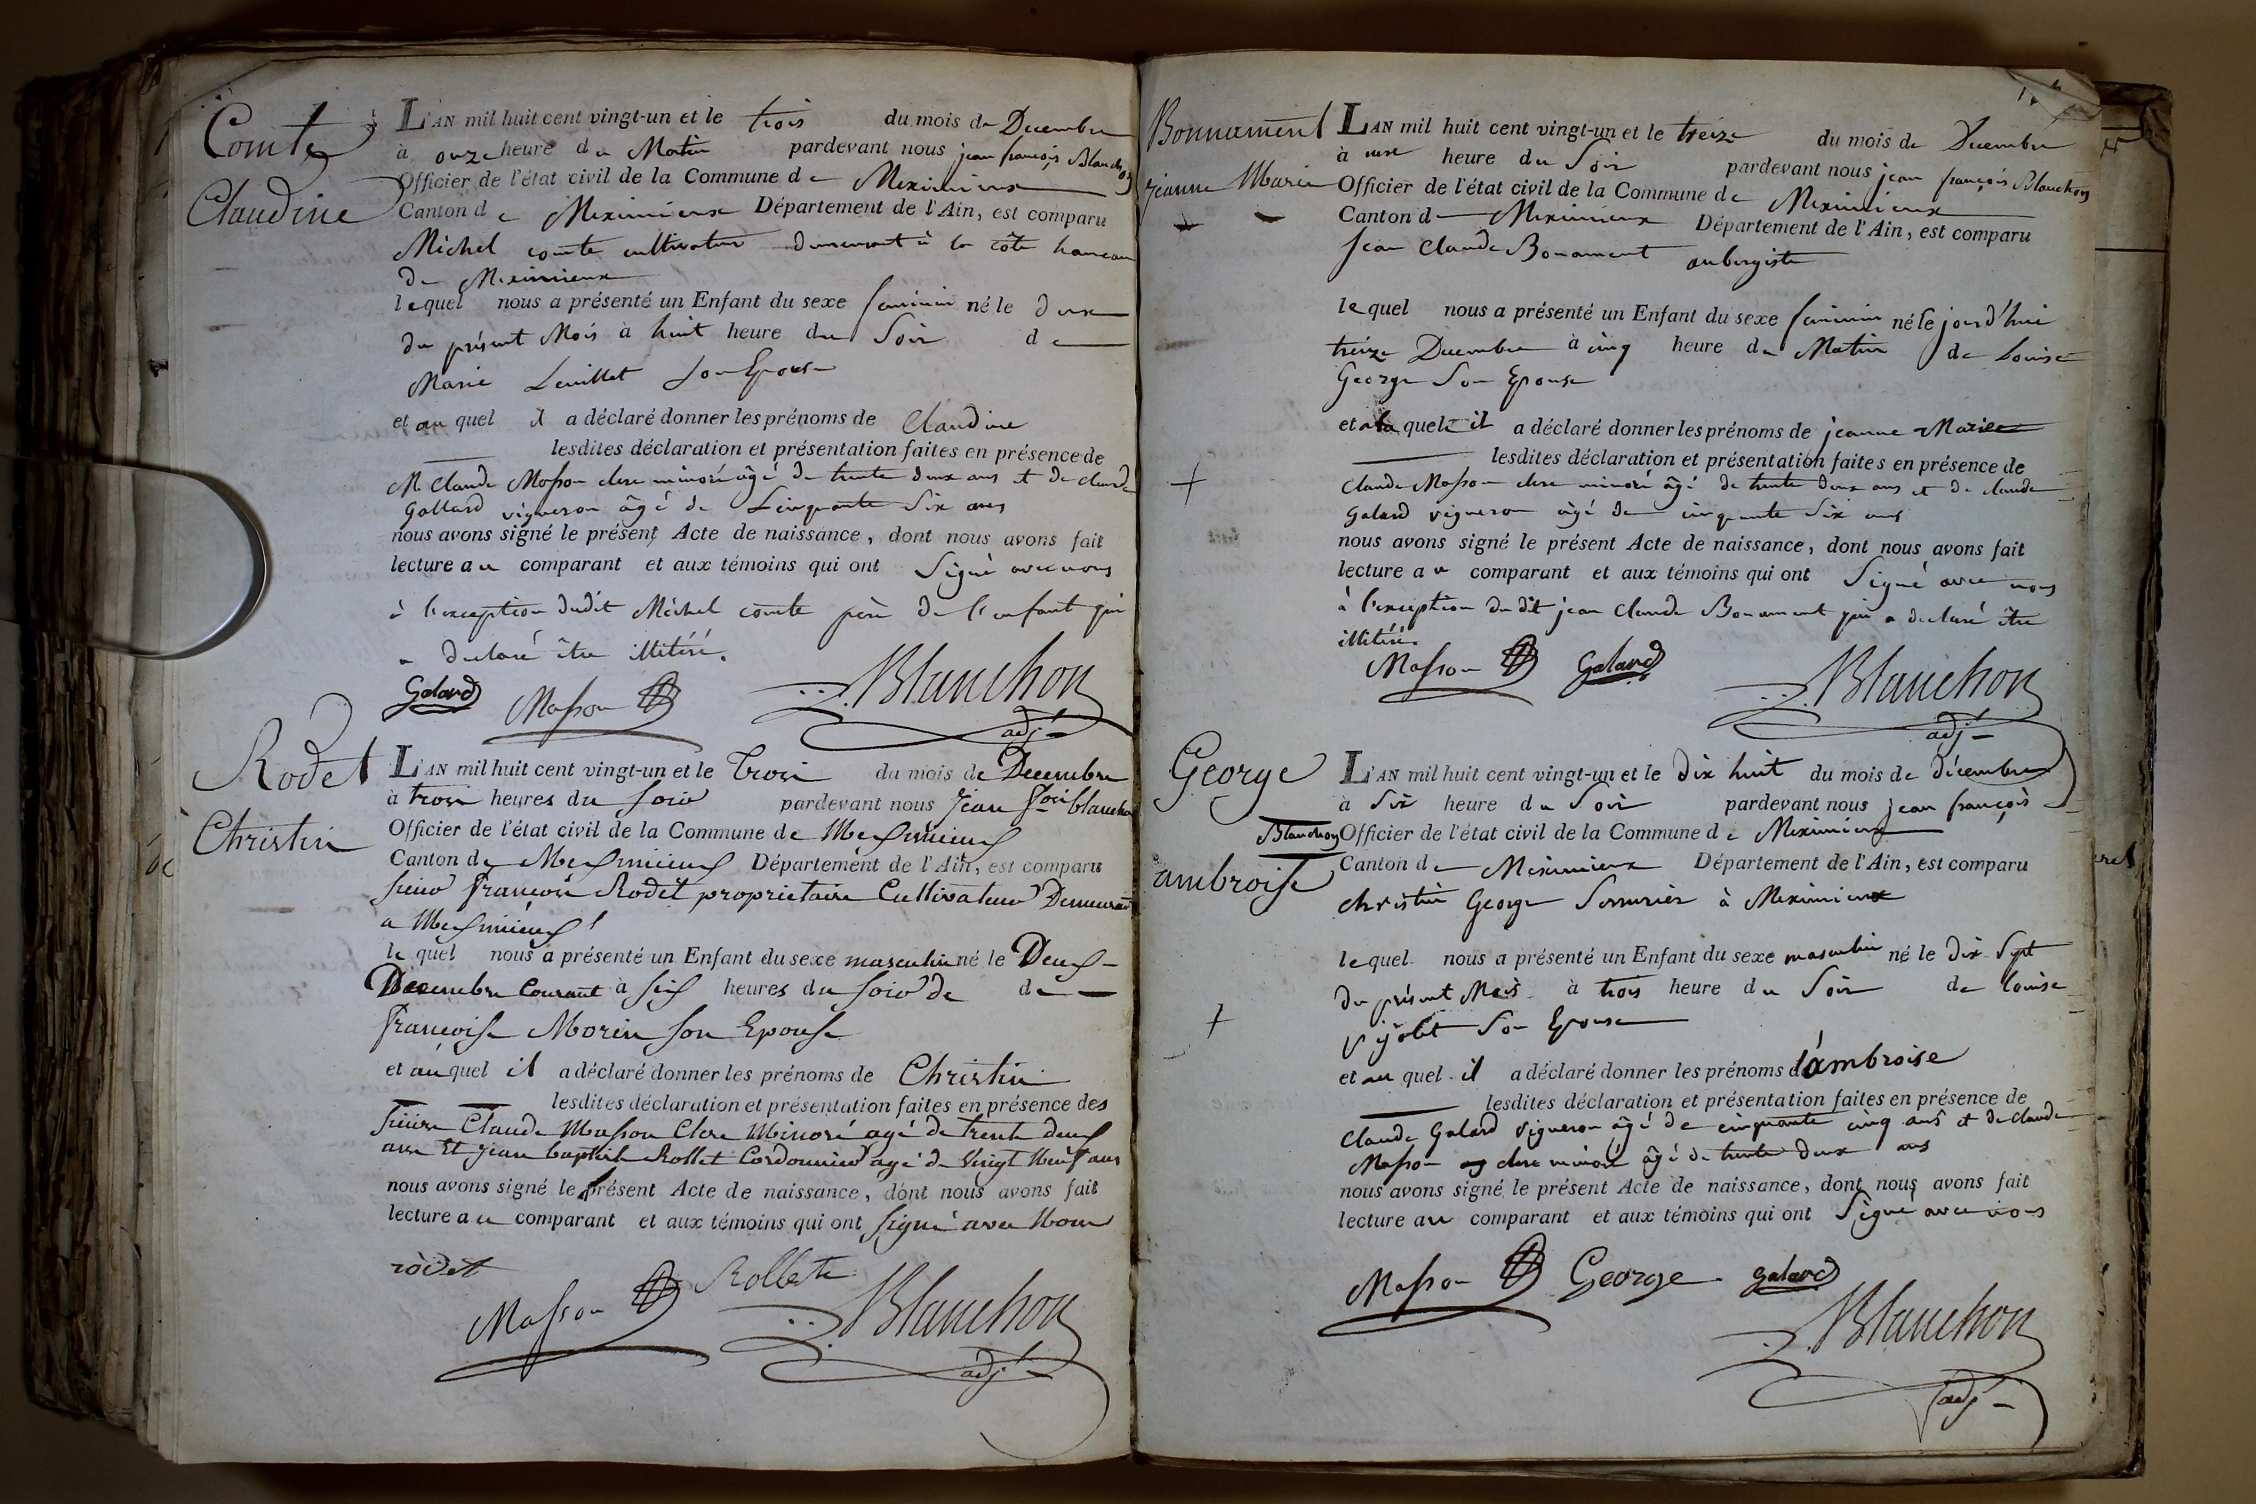 Comte
Claudine
L'AN mil huit cent vingt-un et le trois du mois de Decembre
à onze heure du Matin pardevant nous jean françois Blanchon
Officier de l'état civil de la Commune de Meximieux
Canton de Meximieux Département de l'Ain, est comparu
Michel comte cultivateur demeurant à la côte hameau
de Meximieux
lequel nous a présenté un Enfant du sexe feminin né le deux
du présent Mois à huit heure du Soir de
Marie Leuillet son Epouse
et au quel il a déclaré donner les prénoms de Claudine
lesdites déclaration et présentation faites en présence de
M. Claude Masson clerc minoré âgé de trente deux ans et de claude
Gallard vigneron âgé de Cinquante Six ans
nous avons signé le présent Acte de naissance, dont nous avons fait
lecture au comparant et aux témoins qui ont Signé avec nous
à l'exception dudit Michel comte père de l'enfant qui
a declaré être illitéré.
Galard Masson Blanchon
adj
Rodet
Christin
L'AN mil huit cent vingt-un et le Trois du mois de Decembre
à trois heures du soir pardevant nous Jean fois blanchon
Officier de l'état civil de la Commune de Meximieux
Canton de Meximieux Département de l'Ain, est comparu
sieur françois Rodet proprietaire Cultivateur Demeurant
a Meximieux
le quel nous a présenté un Enfant du sexe masculin né le Deux
Decembre Courant à six heures du soir de de
françoise Morin son Epouse
et au quel il a déclaré donner les prénoms de Christin
lesdites déclaration et présentation faites en présence des
sieurs Claude Masson Clerc Minoré agé de trente deux
ans Et jean baptist Rollet Cordonnier agé de Vingt Neuf ans
nous avons signé le présent Acte de naissance, dont nous avons fait
lecture au comparant et aux témoins qui ont signé avec Nous
rodet
Masson Rollet Blanchon
adj
Bonnament
jeanne Marie
L'AN mil huit cent vingt-un et le treize du mois de Decembre
à une heure du Soir pardevant nous jean françois Blanchon
Officier de l'état civil de la Commune de Meximieux
Canton de Meximieux Département de l'Ain, est comparu
Jean Claude Bonament aubergiste
lequel nous a présenté un Enfant du sexe feminin né le jourd'hui
treize Decembre à cinq heure du Matin de Louise
George Son Epouse
et a la quele il a déclaré donner les prénoms de jeanne Marie
lesdites déclaration et présentation faites en présence de
Claude Masson clerc minoré âgé de trente deux ans et de claude
Galard vigneron âgé de cinquante Six ans
nous avons signé le présent Acte de naissance, dont nous avons fait
lecture au comparant et aux témoins qui ont Signé avec nous
à l'exception du dit jean Claude Bonament qui a declaré être
illitéré.
Masson Galard Blanchon
adj
George
ambroise
L'AN mil huit cent vingt-un et le dix huit du mois de décembre
à Six heure du Soir pardevant nous jean françois
Blanchon Officier de l'état civil de la Commune de Meximieux
Canton de Meximieux Département de l'Ain, est comparu
christin George Serrurier à Meximieux
lequel nous a présenté un Enfant du sexe masculin né le dix Sept
du présent Mois à trois heure du Soir de louise
Son Epouse
et au quel il a déclaré donner les prénoms d'ambroise
lesdites déclaration et présentation faites en présence de
Claude Galard vigneron âgé de cinquante cinq ans et de claude
Masson clerc minoré âgé de trente deux ans
nous avons signé le présent Acte de naissance, dont nous avons fait
lecture au comparant et aux témoins qui ont Signé avec nous
Masson George galard
Blanchon
adj